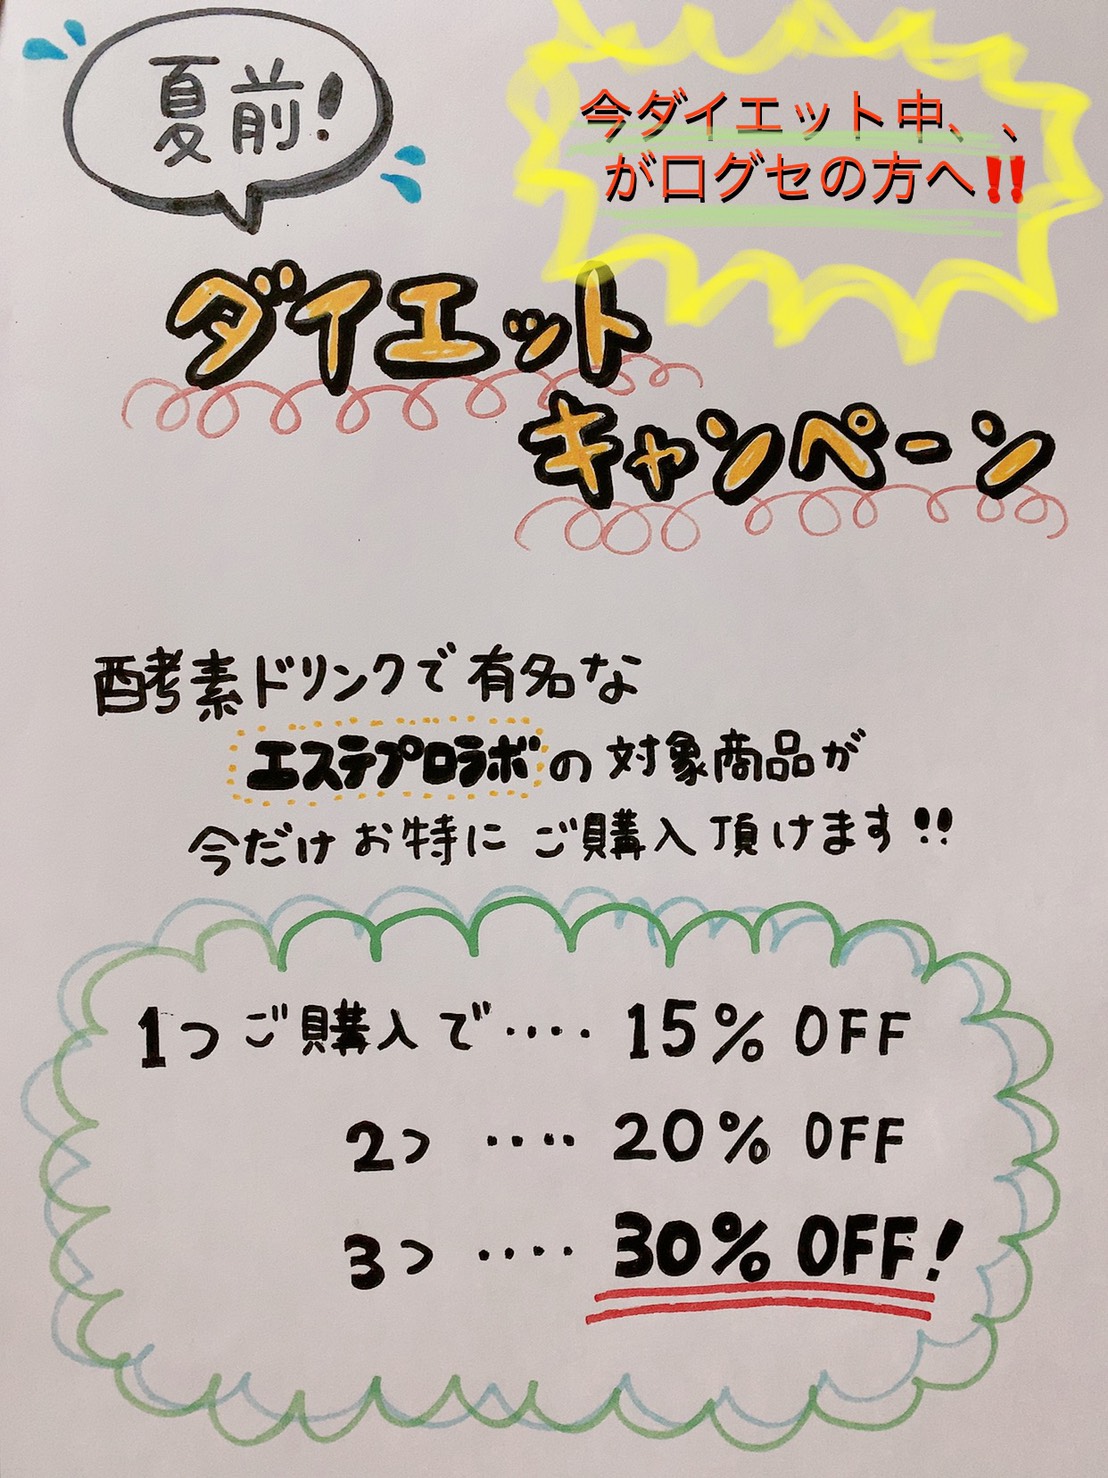 夏前!
今ダイエット中、、
が口グセの方へ‼️
ダイエット
キャンペーン
酵素ドリンクで有名な
エステプロラボの対象商品が
今だけお特にご購入頂けます!!
1つご購入で‥‥15% OFF
2つ ‥‥ 20% OFF
3つ ‥‥ 30% OFF!